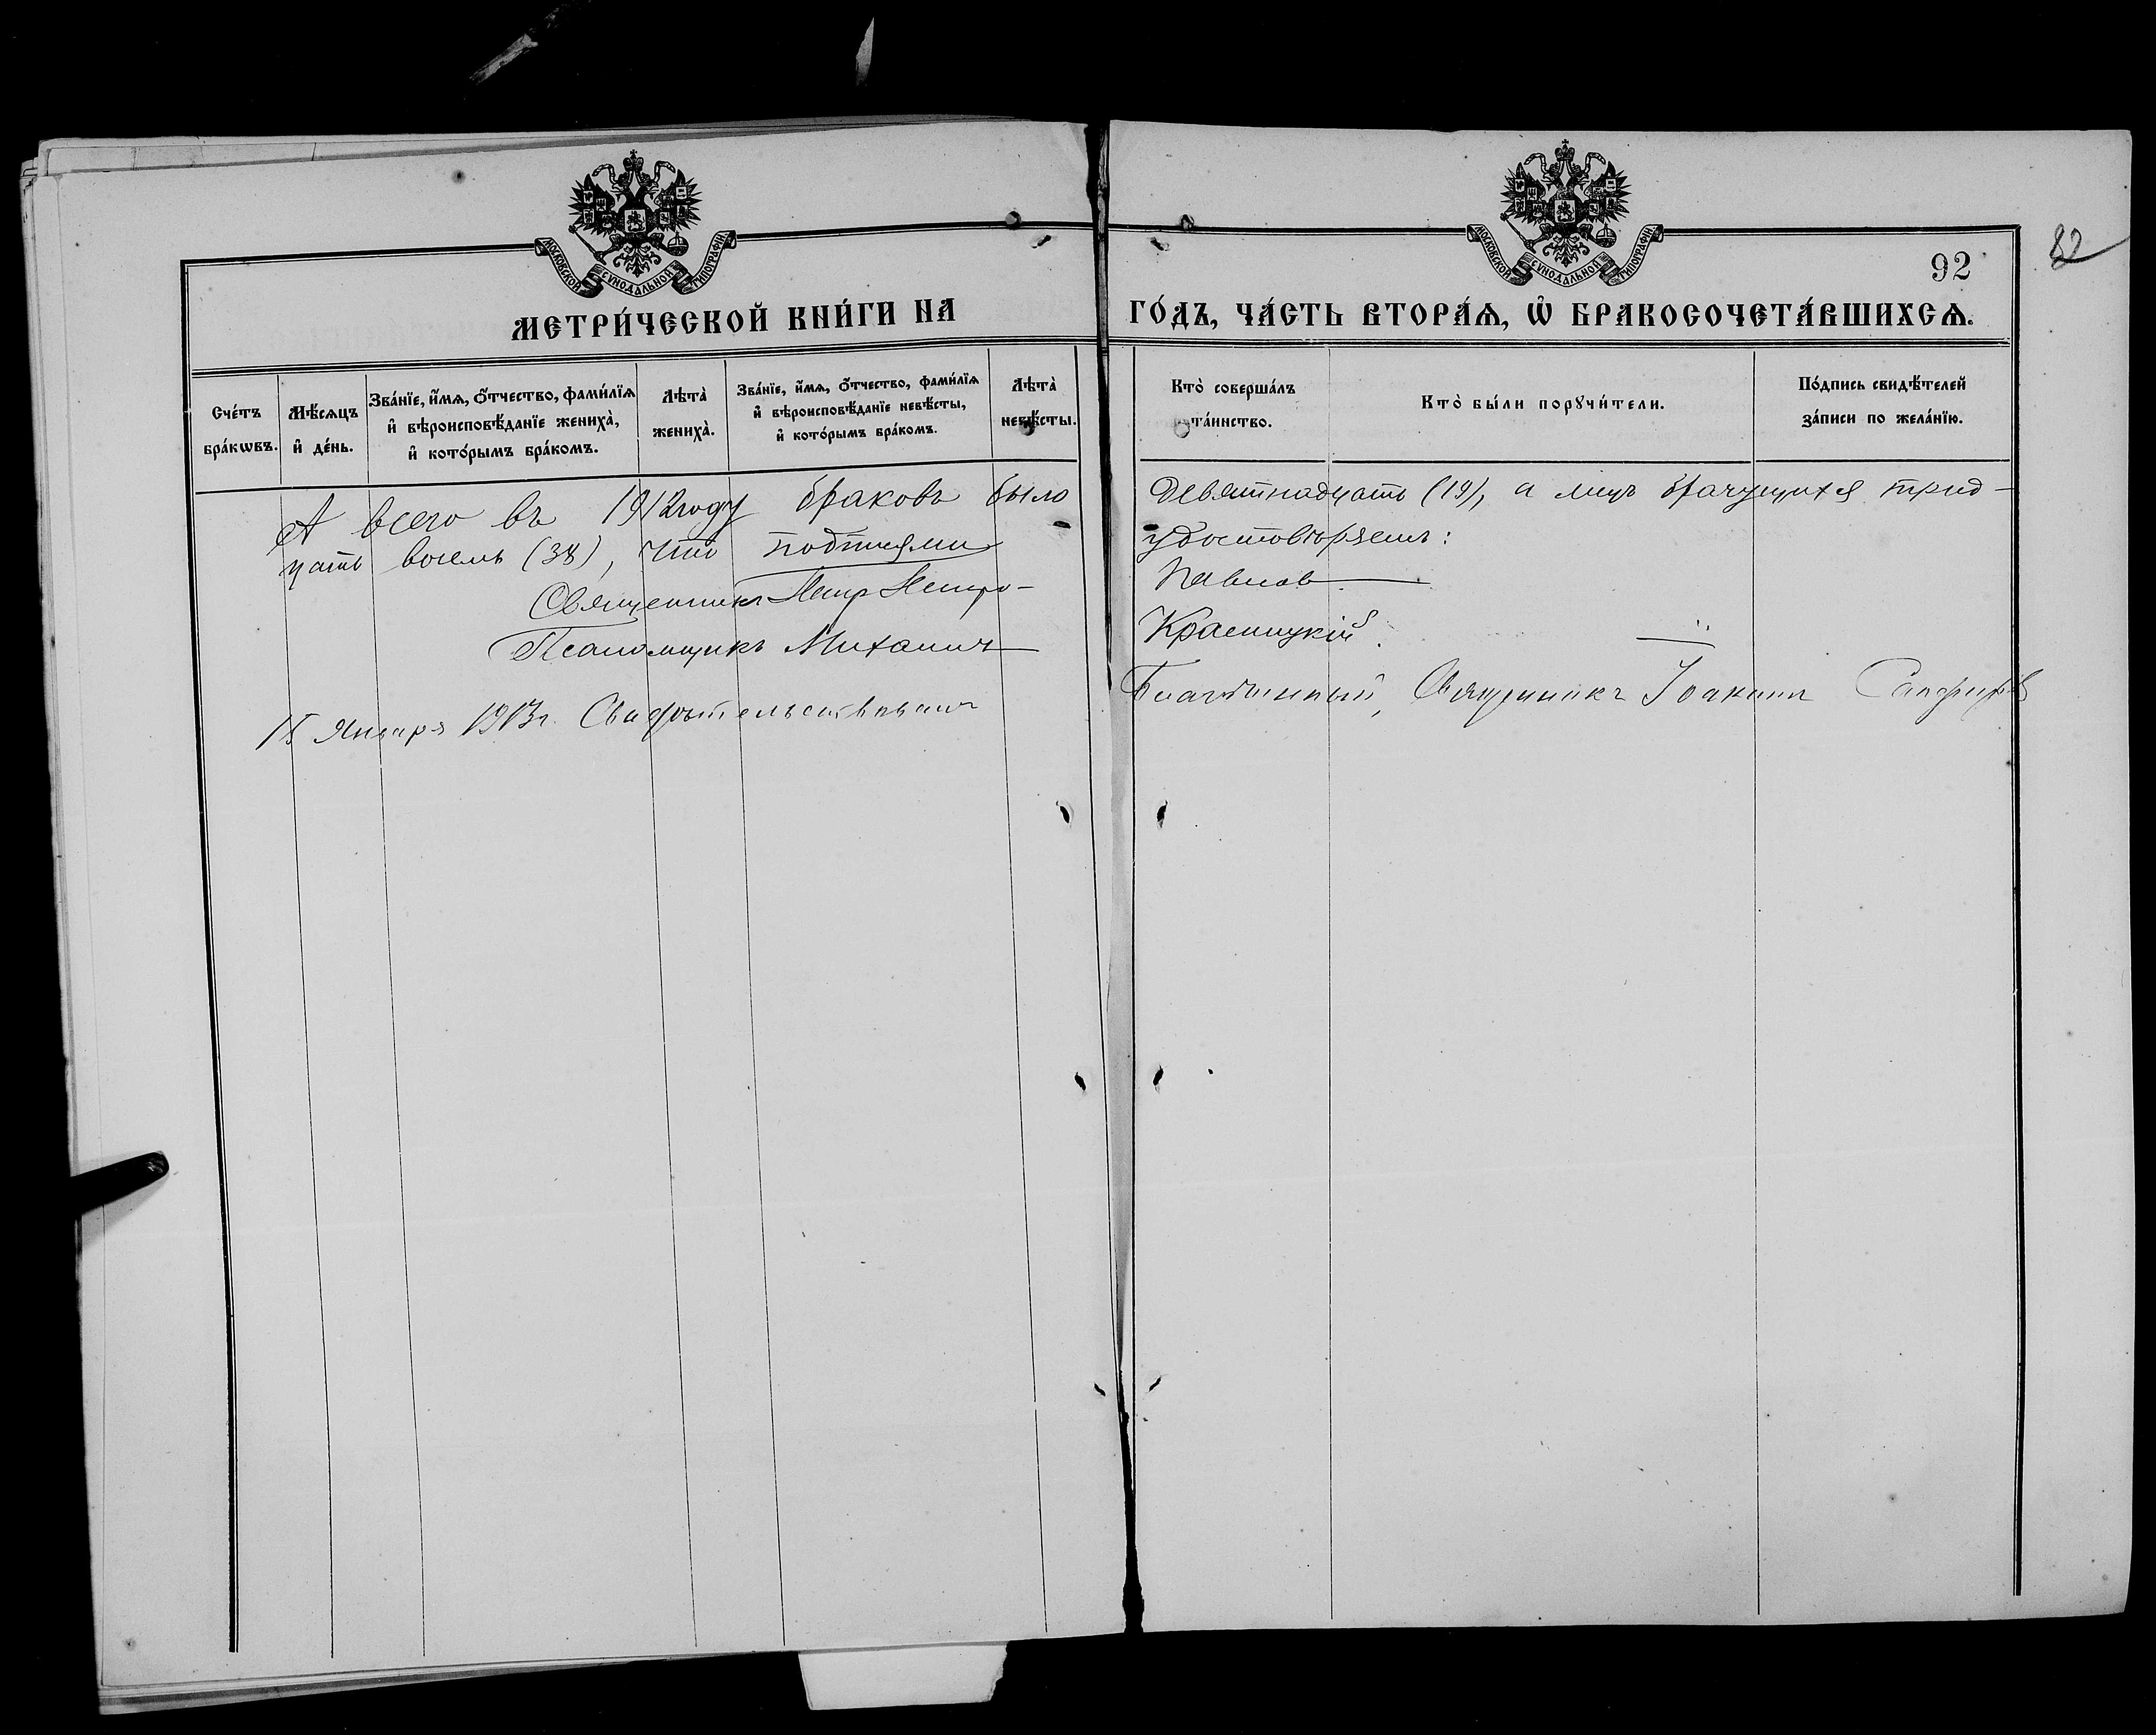 МОСКОВСКОЙ СУНОДАЛЬНОЙ ТИПОГРАФІИ
МОСКОВСКОЙ СУНОДАЛЬНОЙ ТИПОГРАФІИ
92
82
МЕТРИ́ЧЕСКОЙ КНИ́ГИ НА ГО́ДЪ, ЧА́СТЬ ВТОРА́Ѧ, Ѡ҆ БРАКОСОЧЕТА́ВШИХСѦ.
Сче́тъ бра́кѡвъ.
Мѣ́сяцъ и҆ де́нь.
Зва́нїе, и҆́мѧ, ѻ҆́тчество, фами́лїѧ и҆ вѣроисповѣ́данїе жениха̀, и҆ кото́рымъ бра́комъ.
Лѣта̀ жениха̀.
Зва́нїе, и҆́мѧ, ѻ҆́тчество, фами́лїѧ и҆ вѣроисповѣ́данїе невѣ́сты, и҆ кото́рымъ бра́комъ.
Лѣта̀ невѣ́сты.
Кто̀ соверша́лъ та́инство.
Кто̀ бы́ли порꙋчи́тели.
По́дпись свидѣ́телей за́писи по жела́нїю.
А всего въ 1912 году браковъ было девятнадцать (19), а лицъ брачущихся трид-
цать восемь (38), что подписями удостовѣряемъ:
Священникъ Петръ Петро-Павлов
Псаломщикъ Михаилъ Красницкій
15 Января 1913 г. Свидѣтельствовалъ Благочинный, Священникъ Іоаннъ